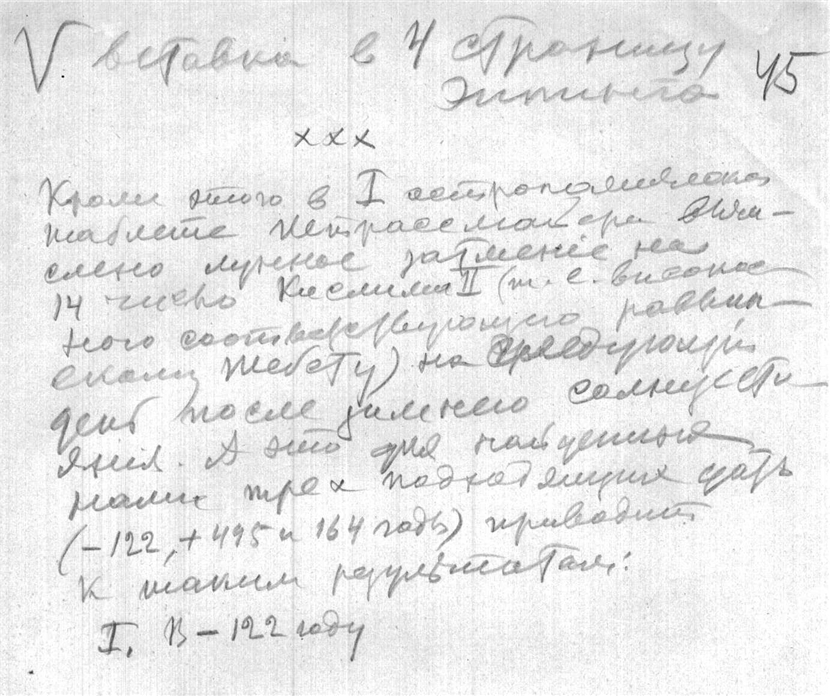 V вставка в 4 страницу 45
Эппинга
xxx
Кроме этого в I астрономических
таблете Штрассмайера вычи-
слено лунное затмение на
14 число Кислима II (т.е. високос
ного соответствующего раввин-
скому Шебету) на следующий
день после зимнего солнцестоя
яния. А это для найденных
нами трех подходящих дат
(-122, +495 и 164 годы) приводит
к таким результатам:
I. В -122 году